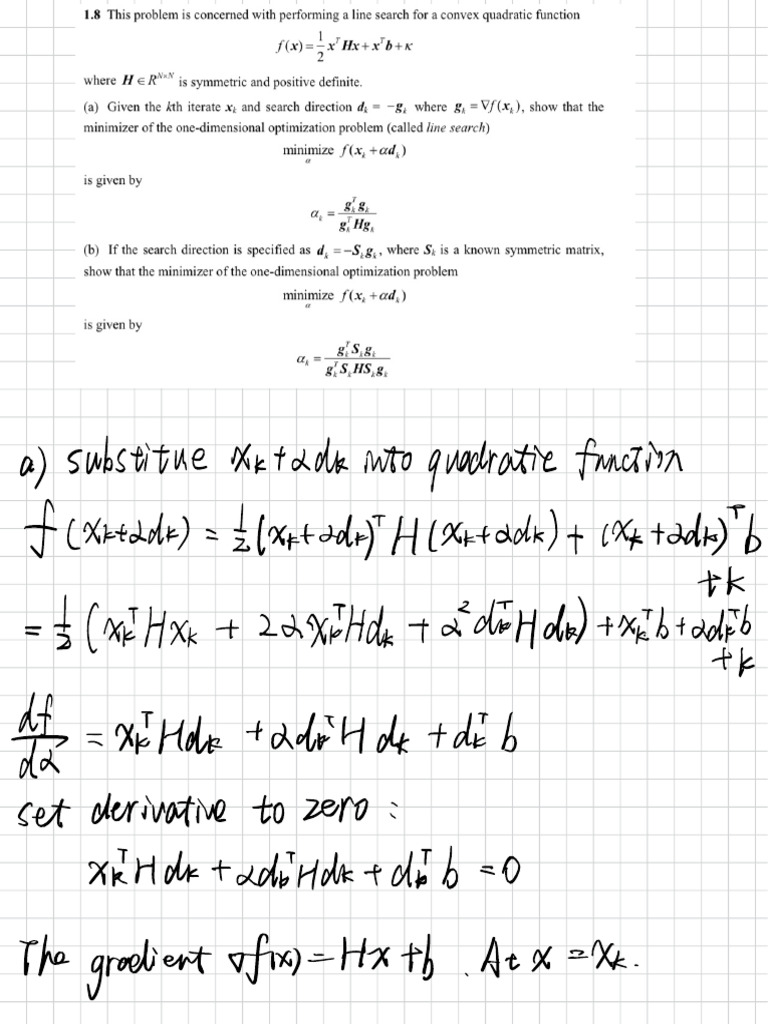 1.8 This problem is concerned with performing a line search for a convex quadratic function
f(x) = 1/2 xᵀHx + xᵀb + κ
where H ∈ Rᴺˣᴺ is symmetric and positive definite.
(a) Given the kth iterate xₖ and search direction dₖ = −gₖ where gₖ = ∇f(xₖ), show that the
minimizer of the one-dimensional optimization problem (called line search)
minimize f(xₖ + αdₖ)
α
is given by
αₖ = gₖᵀgₖ / gₖᵀHgₖ
(b) If the search direction is specified as dₖ = −Sₖgₖ, where Sₖ is a known symmetric matrix,
show that the minimizer of the one-dimensional optimization problem
minimize f(xₖ + αdₖ)
α
is given by
αₖ = gₖᵀSₖgₖ / gₖᵀSₖHSₖgₖ
a) substitue xₖ+αdₖ into quadratic function
f(xₖ+αdₖ) = 1/2 (xₖ+αdₖ)ᵀ H(xₖ+αdₖ) + (xₖ+αdₖ)ᵀb
+k
= 1/2 (xₖᵀHxₖ + 2αxₖᵀHdₖ + α²dₖᵀHdₖ) + xₖᵀb + αdₖᵀb
+k
df/dα = xₖᵀHdₖ + αdₖᵀHdₖ + dₖᵀb
set derivative to zero :
xₖᵀHdₖ + αdₖᵀHdₖ + dₖᵀb = 0
The gradient ∇f(x) = Hx + b . At x = xₖ.